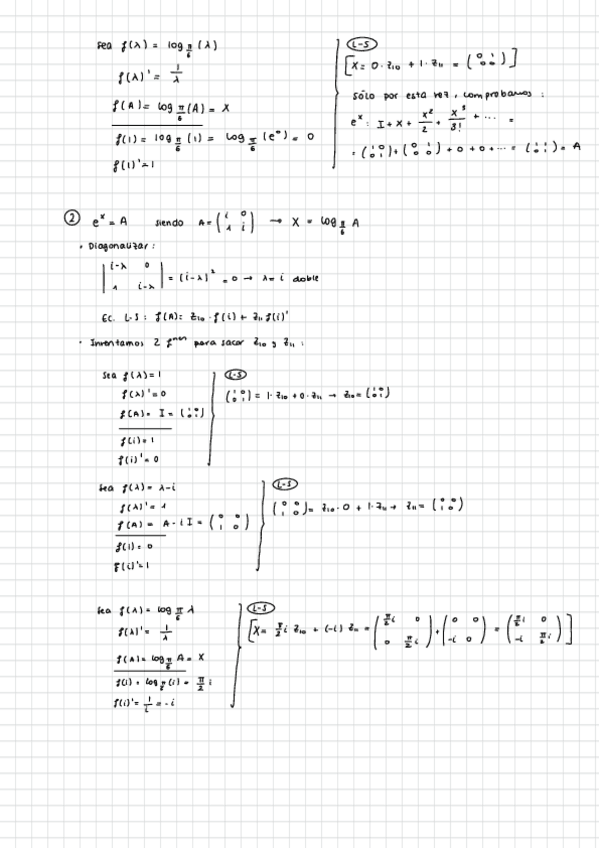 Sea f(λ) = log_{π/6}(λ)
f(λ)' = 1/λ
f(A) = log_{π/6}(A) = X
f(1) = log_{π/6}(1) = log_{π/6}(e⁰) = 0
f(1)' = 1
L-S
[X = 0 · Z₁₀ + 1 · Z₁₁ = (0 1; 0 0)]
Sólo por esta vez, comprobamos:
eˣ : I + X + X²/2 + X³/3! + ... =
= (1 0; 0 1) + (0 1; 0 0) + 0 + 0 + ... = (1 1; 0 1) = A
② eˣ = A siendo A = (i 0; 1 i) → X = log_{π/6} A
• Diagonalizar:
|i-λ 0; 1 i-λ| = (i-λ)² = 0 → λ = i doble
Ec. L-S : f(A) = Z₁₀ · f(i) + Z₁₁ f(i)'
• Inventamos 2 fⁿᵉˢ para sacar Z₁₀ y Z₁₁ :
Sea f(λ) = 1
f(λ)' = 0
f(A) = I = (1 0; 0 1)
f(i) = 1
f(i)' = 0
L-S
(1 0; 0 1) = 1 · Z₁₀ + 0 · Z₁₁ → Z₁₀ = (1 0; 0 1)
Sea f(λ) = λ-i
f(λ)' = 1
f(A) = A - iI = (0 0; 1 0)
f(i) = 0
f(i)' = 1
L-S
(0 0; 1 0) = Z₁₀ · 0 + 1 · Z₁₁ → Z₁₁ = (0 0; 1 0)
Sea f(λ) = log_{π/6} λ
f(λ)' = 1/λ
f(A) = log_{π/6} A = X
f(i) = log_{π/6}(i) = π/2 i
f(i)' = 1/i = -i
L-S
[X = π/2 i Z₁₀ + (-i) Z₁₁ = (π/2 i 0; 0 π/2 i) + (0 0; -i 0) = (π/2 i 0; -i π/2 i)]